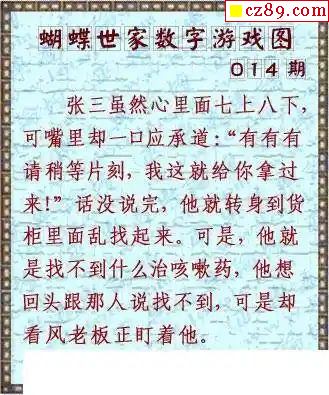 cz89.com
蝴蝶世家数字游戏图
014期
张三虽然心里面七上八下,
可嘴里却一口应承道:“有有有
请稍等片刻,我这就给你拿过
来!”话没说完,他就转身到货
柜里面乱找起来。可是,他就
是找不到什么治咳嗽药,他想
回头跟那人说找不到,可是却
看风老板正盯着他。